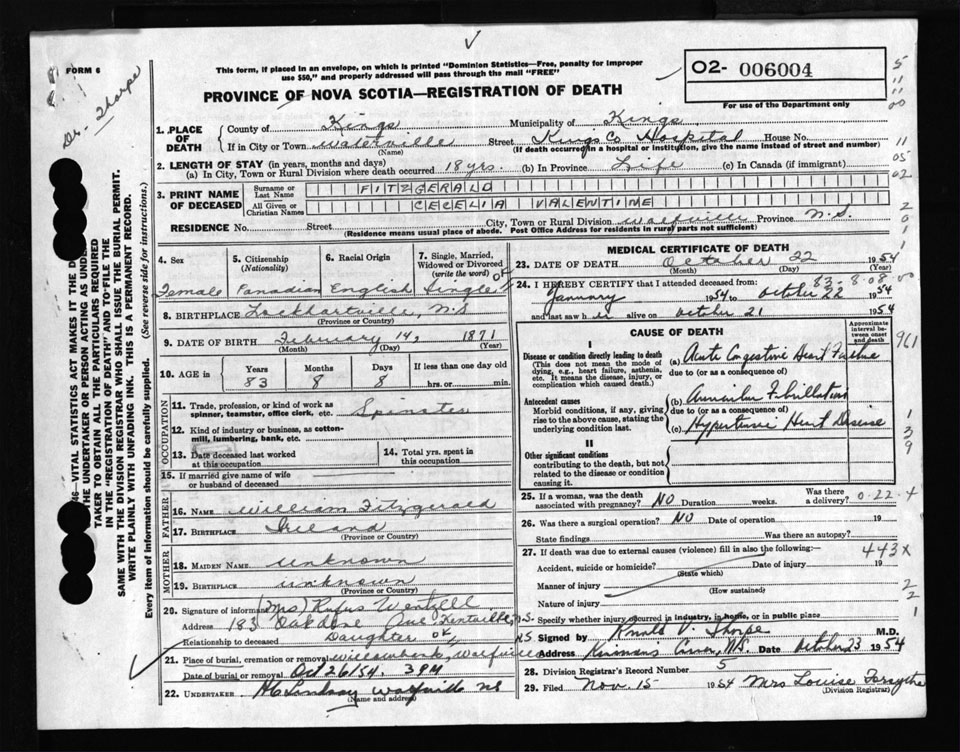 FORM 6
Dr. Thorpe
This form, if placed in an envelope, on which is printed "Dominion Statistics—Free, penalty for improper
use $50," and properly addressed will pass through the mail "FREE"
PROVINCE OF NOVA SCOTIA—REGISTRATION OF DEATH
O2- 006004
For use of the Department only
1. PLACE OF DEATH
County of Kings Municipality of Kings
If in City or Town Waterville Street Kings Co Hospital House No.
(Name) (If death occurred in a hospital or institution, give the name instead of street and number)
2. LENGTH OF STAY (in years, months and days)
(a) In City, Town or Rural Division where death occurred 18 yrs. (b) In Province Life (c) In Canada (if immigrant)
3. PRINT NAME OF DECEASED
Surname or Last Name FITZGERALD
All Given or Christian Names CECELIA VALENTINE
RESIDENCE No. Street City, Town or Rural Division Wolfville Province N.S.
(Residence means usual place of abode. Post Office Address for residents in rural parts not sufficient)
4. Sex
Female
5. Citizenship (Nationality)
Canadian
6. Racial Origin
English
7. Single, Married, Widowed or Divorced (write the word)
Single OK
8. BIRTHPLACE Lockhartville, N.S
(Province or Country)
9. DATE OF BIRTH February 14, 1871
(Month) (Day) (Year)
10. AGE in
Years Months Days If less than one day old
83 8 8 hrs. or min.
OCCUPATION
11. Trade, profession, or kind of work as
spinner, teamster, office clerk, etc. Spinster
12. Kind of industry or business, as cotton-
mill, lumbering, bank, etc.
13. Date deceased last worked
at this occupation
14. Total yrs. spent in
this occupation
15. If married give name of wife
or husband of deceased
FATHER
16. Name William Fitzgerald
17. Birthplace Ireland
(Province or Country)
MOTHER
18. MAIDEN NAME Unknown
19. BIRTHPLACE Unknown
(Province or Country)
20. Signature of informant (Mrs) Rufus Wentzell
Address 183 Oakdene Ave Kentville, N.S.
Relationship to deceased Daughter OK
21. Place of burial, cremation or removal Willowbank, Wolfville N.S.
Date of burial or removal Oct 26/54. 3 PM
22. UNDERTAKER H C Lindsay Wolfville NS
(Name and address)
MEDICAL CERTIFICATE OF DEATH
23. DATE OF DEATH October 22 1954
(Month) (Day) (Year)
83-8-08
24. I HEREBY CERTIFY that I attended deceased from:
January 1954 to October 22 1954
and last saw her alive on October 21 1954
CAUSE OF DEATH
Approximate interval between onset and death
I
Disease or condition directly leading to death
(This does not mean the mode of
dying, e.g., heart failure, asthenia,
etc. It means the disease, injury, or
complication which caused death.)
(a) Acute Congestive Heart Failure
due to (or as a consequence of)
Antecedent causes
Morbid conditions, if any, giving
rise to the above cause, stating the
underlying condition last.
(b) Auricular Fibrillation
due to (or as a consequence of)
(c) Hypertensive Heart Disease
II
Other significant conditions
contributing to the death, but not
related to the disease or condition
causing it.
25. If a woman, was the death
associated with pregnancy? NO Duration weeks. Was there a delivery?
26. Was there a surgical operation? NO Date of operation 19
State findings Was there an autopsy?
27. If death was due to external causes (violence) fill in also the following:— 443X
Accident, suicide or homicide? Date of injury 19
(State which)
Manner of injury
(How sustained)
Nature of injury
Specify whether injury occurred in industry, in home, or in public place
Signed by Ronald V. Thorpe M.D.
Address Date October 23 1954
28. Division Registrar's Record Number 5
29. Filed Nov. 15 1954 Mrs Louise Forsythe
(Division Registrar)
46—VITAL STATISTICS ACT MAKES IT THE
THE UNDERTAKER OR PERSON ACTING AS
TAKER TO OBTAIN ALL THE PARTICULARS REQUIRED
IN THE "REGISTRATION OF DEATH" AND TO FILE THE
SAME WITH THE DIVISION REGISTRAR WHO SHALL ISSUE THE BURIAL PERMIT.
WRITE PLAINLY WITH UNFADING INK. THIS IS A PERMANENT RECORD.
Every item of information should be carefully supplied. (See reverse side for instructions.)